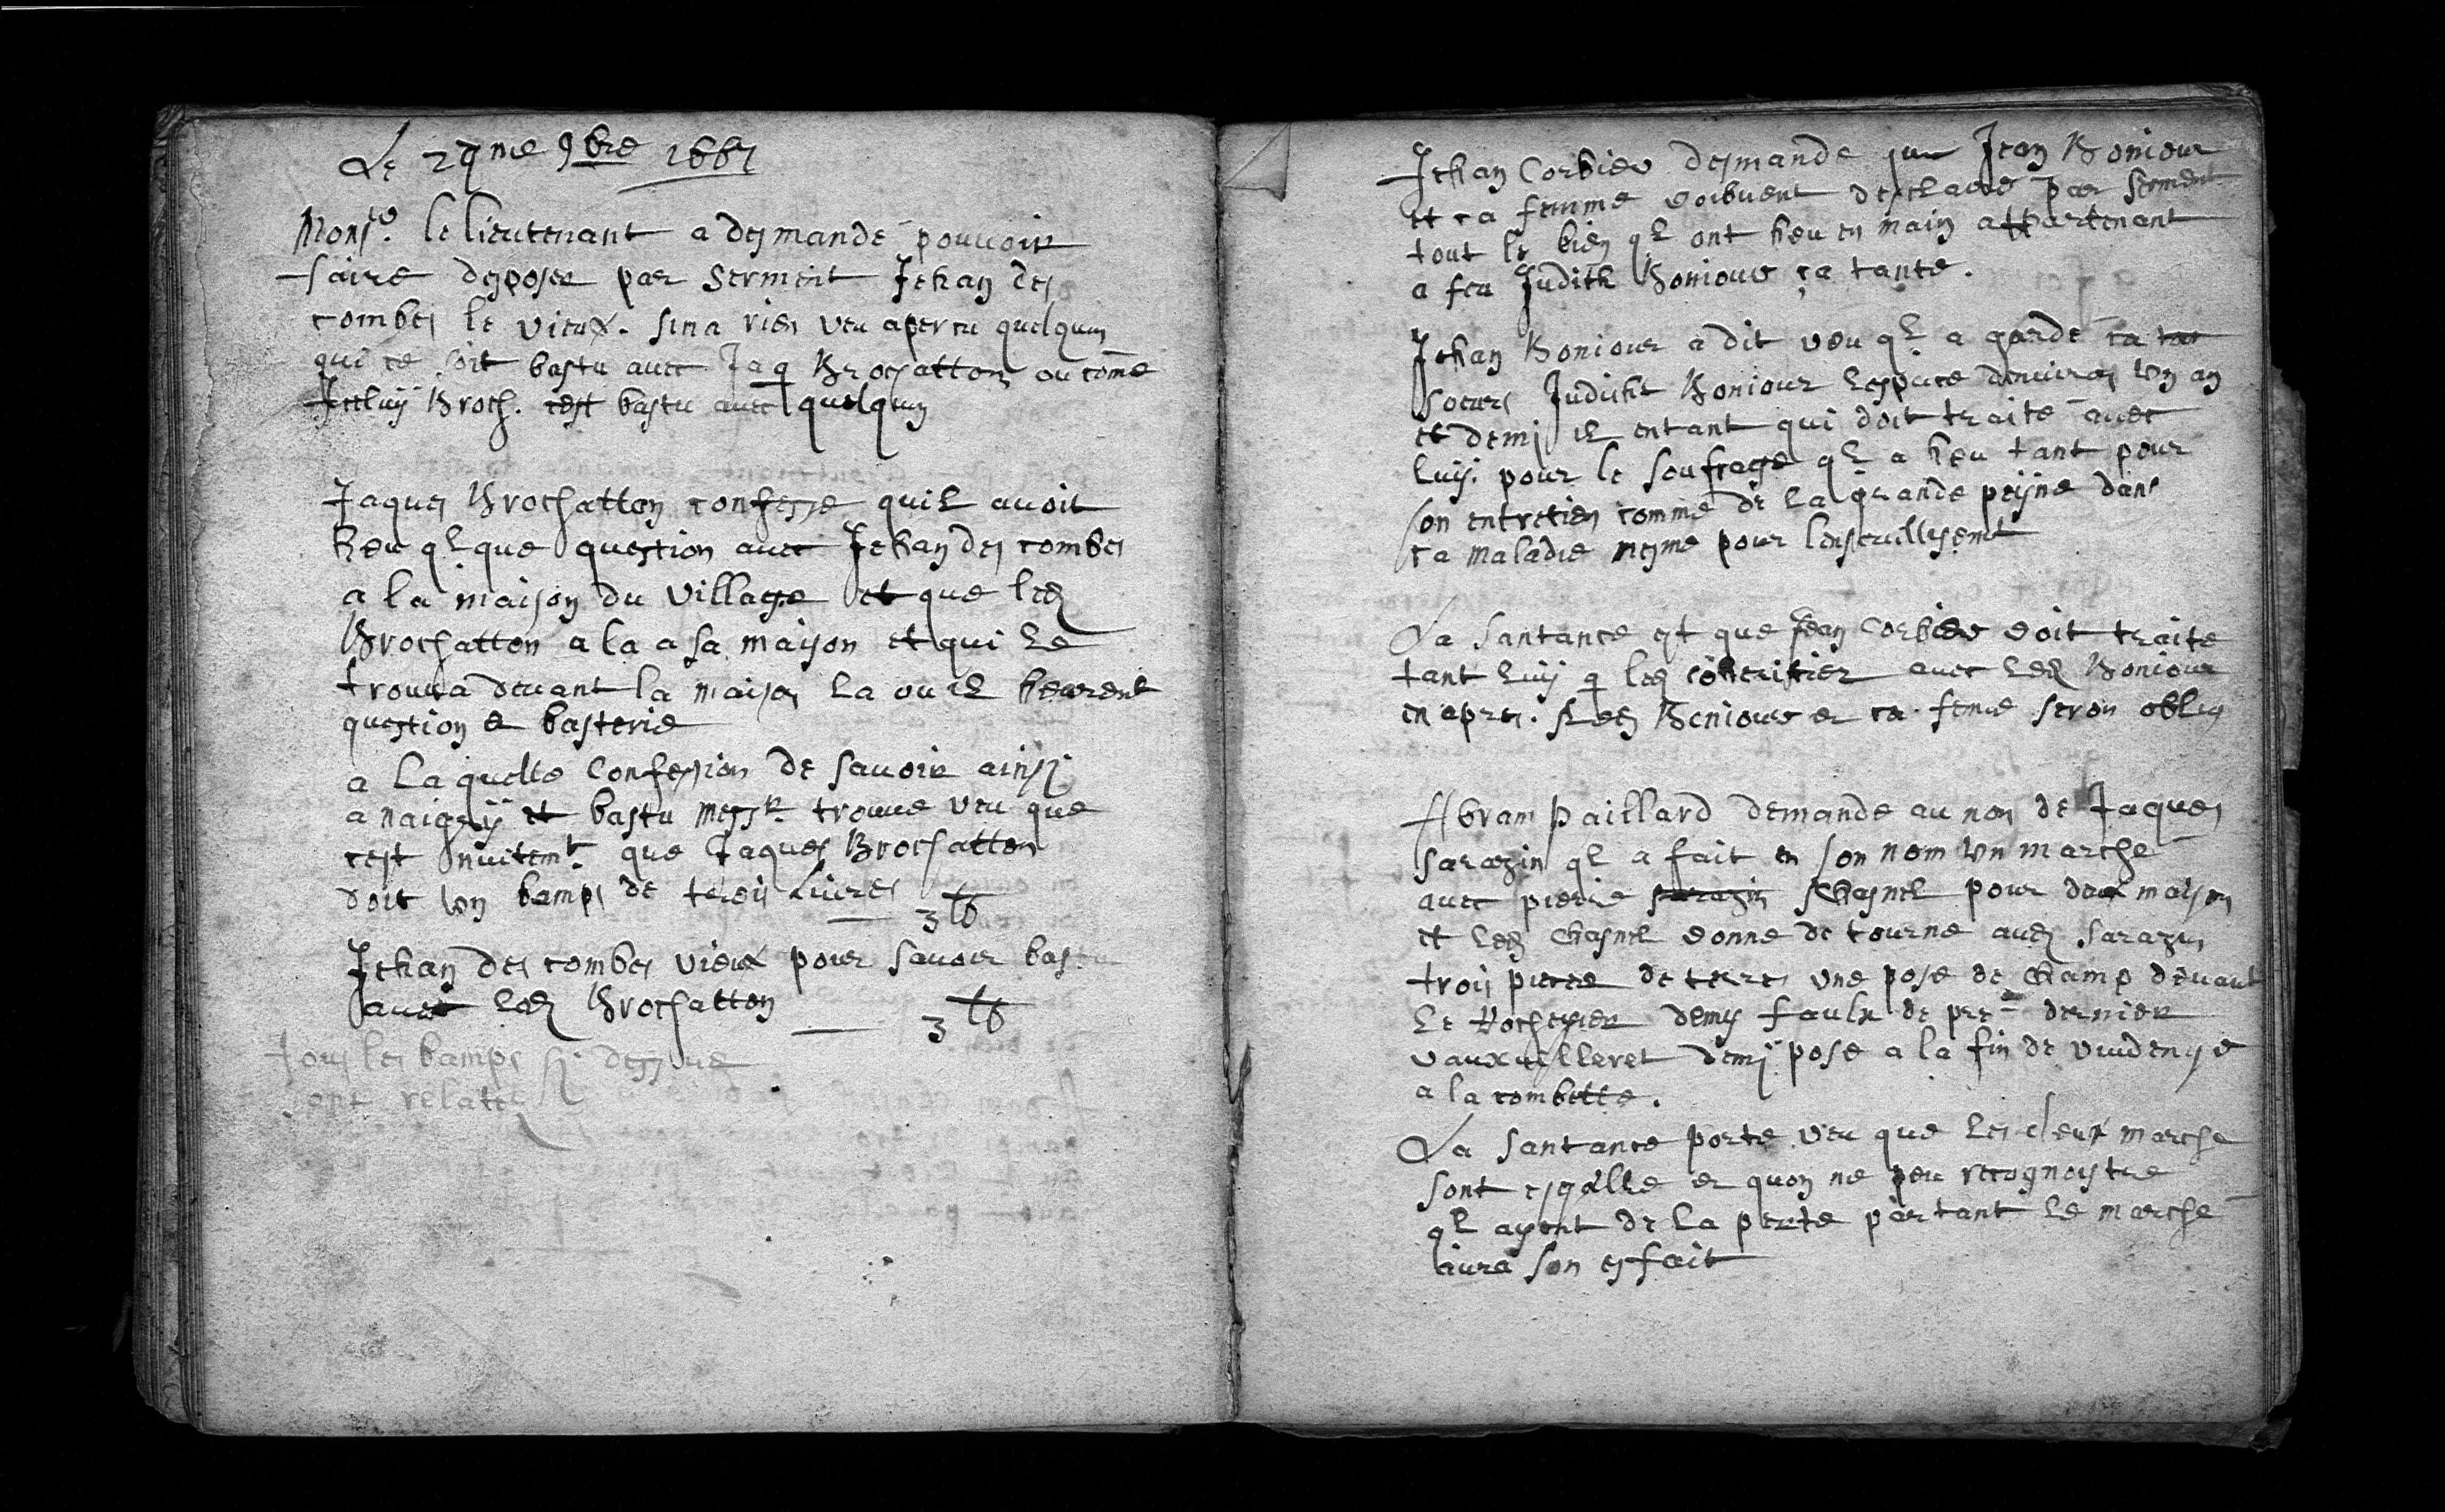 Le 29me 9bre 1667
Monsr. le lieutenant a desmandé pouvoir
faire desposer par serment Jehan des
combes le vieux. sin a rien veu apercu quelqun
qui ce soit bastu avec Jaq Brochatton ou come
Jcelluÿ Broch. cest bastu avec quelqun
Jaques Brochatton confesse quil avoit
heu qlque question avec Jehan des combes
a la maison du village et que led
Brochatton a la a sa maison et qui le
trouva devant la maison la ou il heurent
question & basterie
a laquelle confession de savoir ainsi
a naigÿ et bastu messrs trouve veu que
cest nuitemt. que Jaques Brochatton
doit un bamps de trois livres — 3 lb
Jehan des combes vieux pour savoir bastu
avec led Brochatton — 3 lb
Tous les bamps sy dessus
sont relatés
Jehan Corbier desmande que Jean Boniour
et ca femme doibvent desclaré par serment
tout le bien ql ont heu en main appartenant
a feu Judith Boniour ca tante.
Jehan Boniour a dit veu ql a gardé ca
soeurs Judicht Boniour lespace denviron un an
et demi il entant qui doit traité avec
luy. pour le soufrage ql a heu tant pour
son entretien comme de la grande peyne dans
ca maladie mesme pour lensevellisemt
La santance est que Jean Corbier doit traité
tant luÿ q les coheritier avec led Boniour
en apres. led Boniour & ca feme seron oblig
Abram Paillard demande au nom de Jaques
Sarazin ql a fait en son nom un marché
avec pierre sarazin Chasnel pour deux maison
et led Chasnel donne de tourne aud Sarazin
trois piece de terre une pose de champ devant
le Hocheser demy faulx de pré dernier
vauxvilleret demÿ pose a la fin de vuidenge
a la combette.
La santance porte veu que les deux marché
sont esgalle & quon ne peu recognoystre
ql ayent de la perte partant le marché
aura son esfait